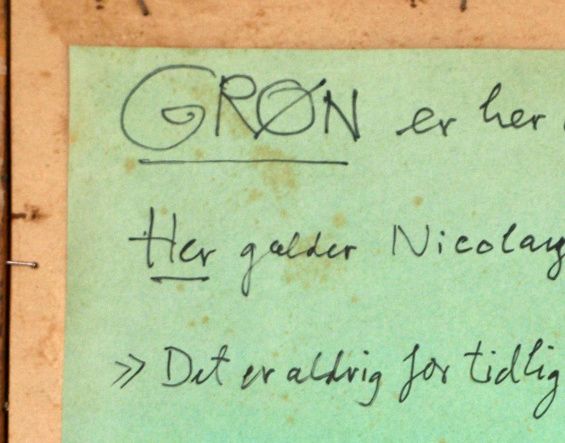 GRØN er her
Her gælder Nicolay
» Det er aldrig for tidlig